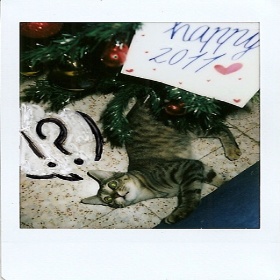 happy
2011
(!?)